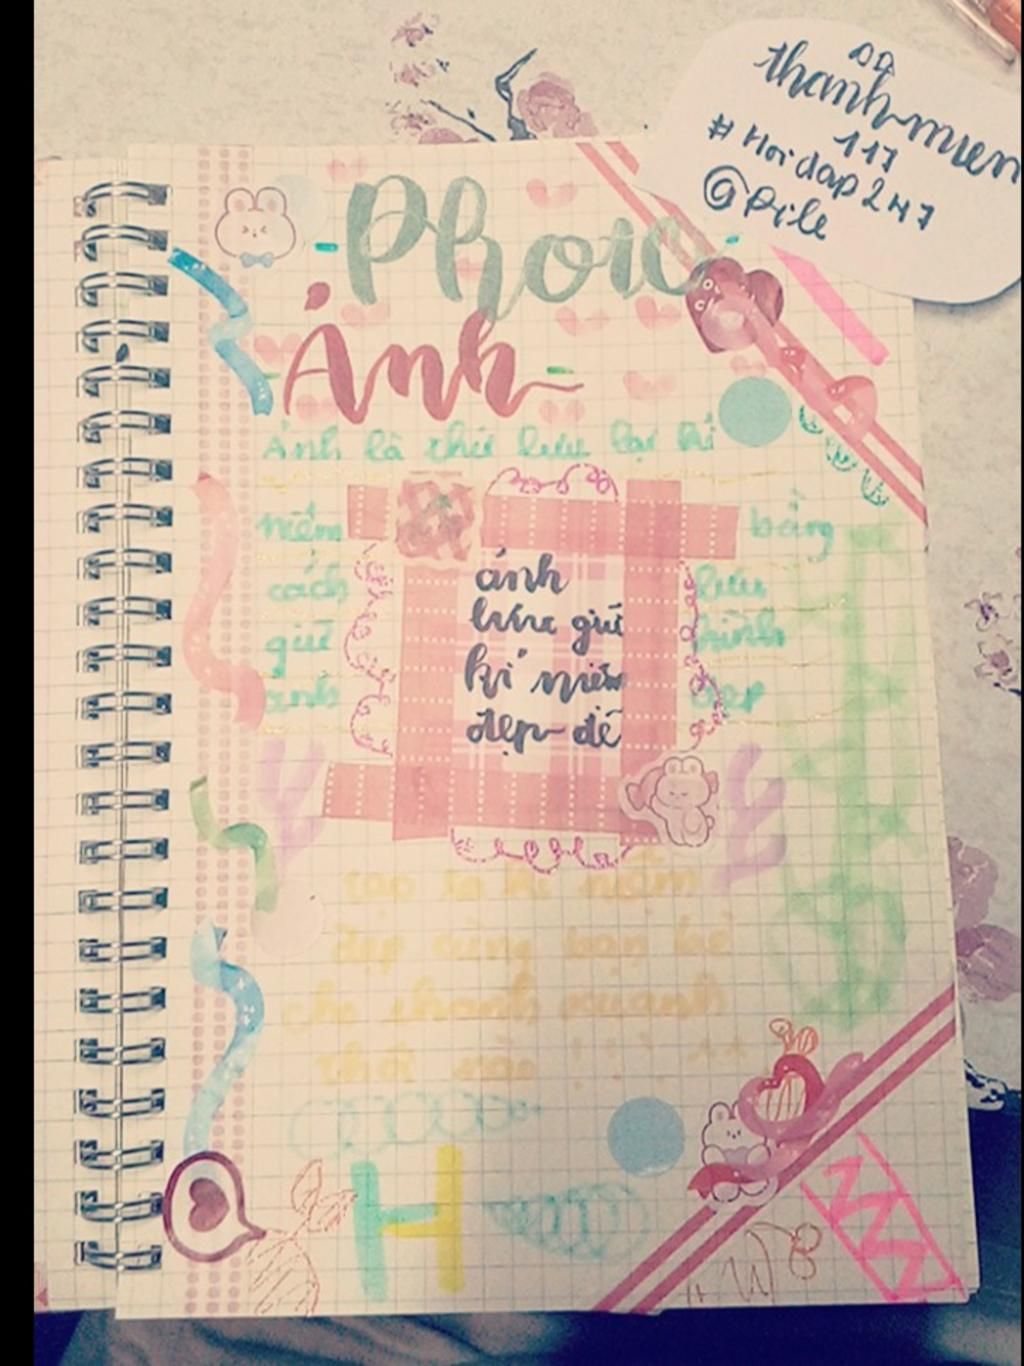 thanhmien
117
#Hoidap247
@Pile
Photo
Ảnh
Ảnh là thứ lưu lại kỉ
niềm bằng
cách lưu
giữ hình
ảnh đẹp
ảnh
lưu giữ
kỉ niệm
đẹp đẽ
tạo ra kỉ niềm
đẹp cùng bạn bè
cho thanh xuanh
thôi nào !!!
H